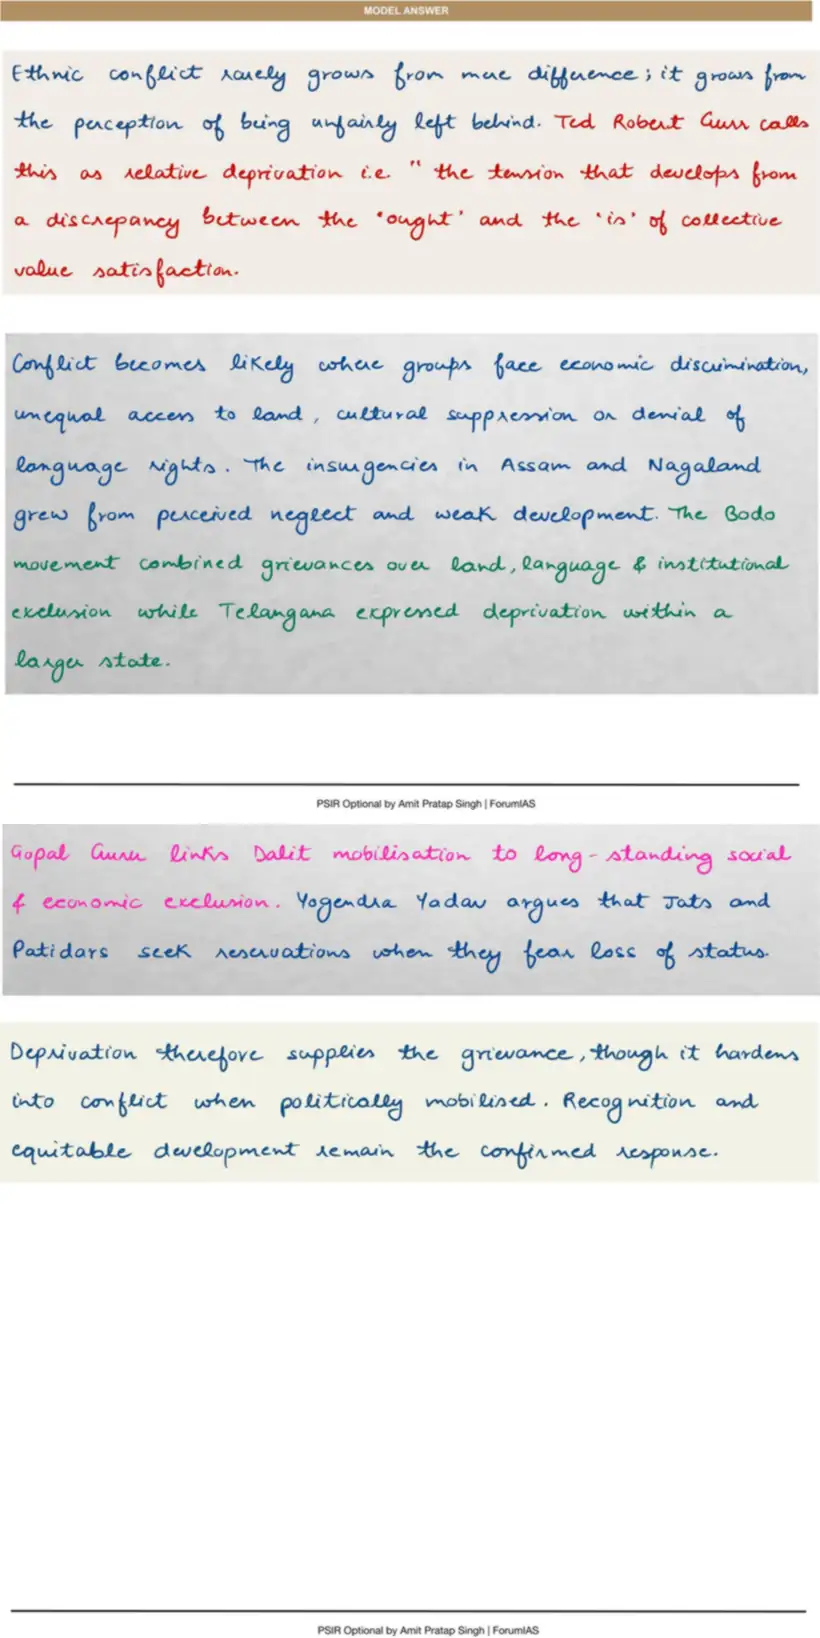 MODEL ANSWER
Ethnic conflict rarely grows from mere difference; it grows from
the perception of being unfairly left behind. Ted Robert Gurr calls
this as relative deprivation i.e. " the tension that develops from
a discrepancy between the 'ought' and the 'is' of collective
value satisfaction.
Conflict becomes likely where groups face economic discrimination,
unequal access to land, cultural suppression or denial of
language rights. The insurgencies in Assam and Nagaland
grew from perceived neglect and weak development. The Bodo
movement combined grievances over land, language & institutional
exclusion while Telangana expressed deprivation within a
larger state.
PSIR Optional by Amit Pratap Singh | ForumIAS
Gopal Guru links Dalit mobilisation to long-standing social
& economic exclusion. Yogendra Yadav argues that Jats and
Patidars seek reservations when they fear loss of status.
Deprivation therefore supplies the grievance, though it hardens
into conflict when politically mobilised. Recognition and
equitable development remain the confirmed response.
PSIR Optional by Amit Pratap Singh | ForumIAS